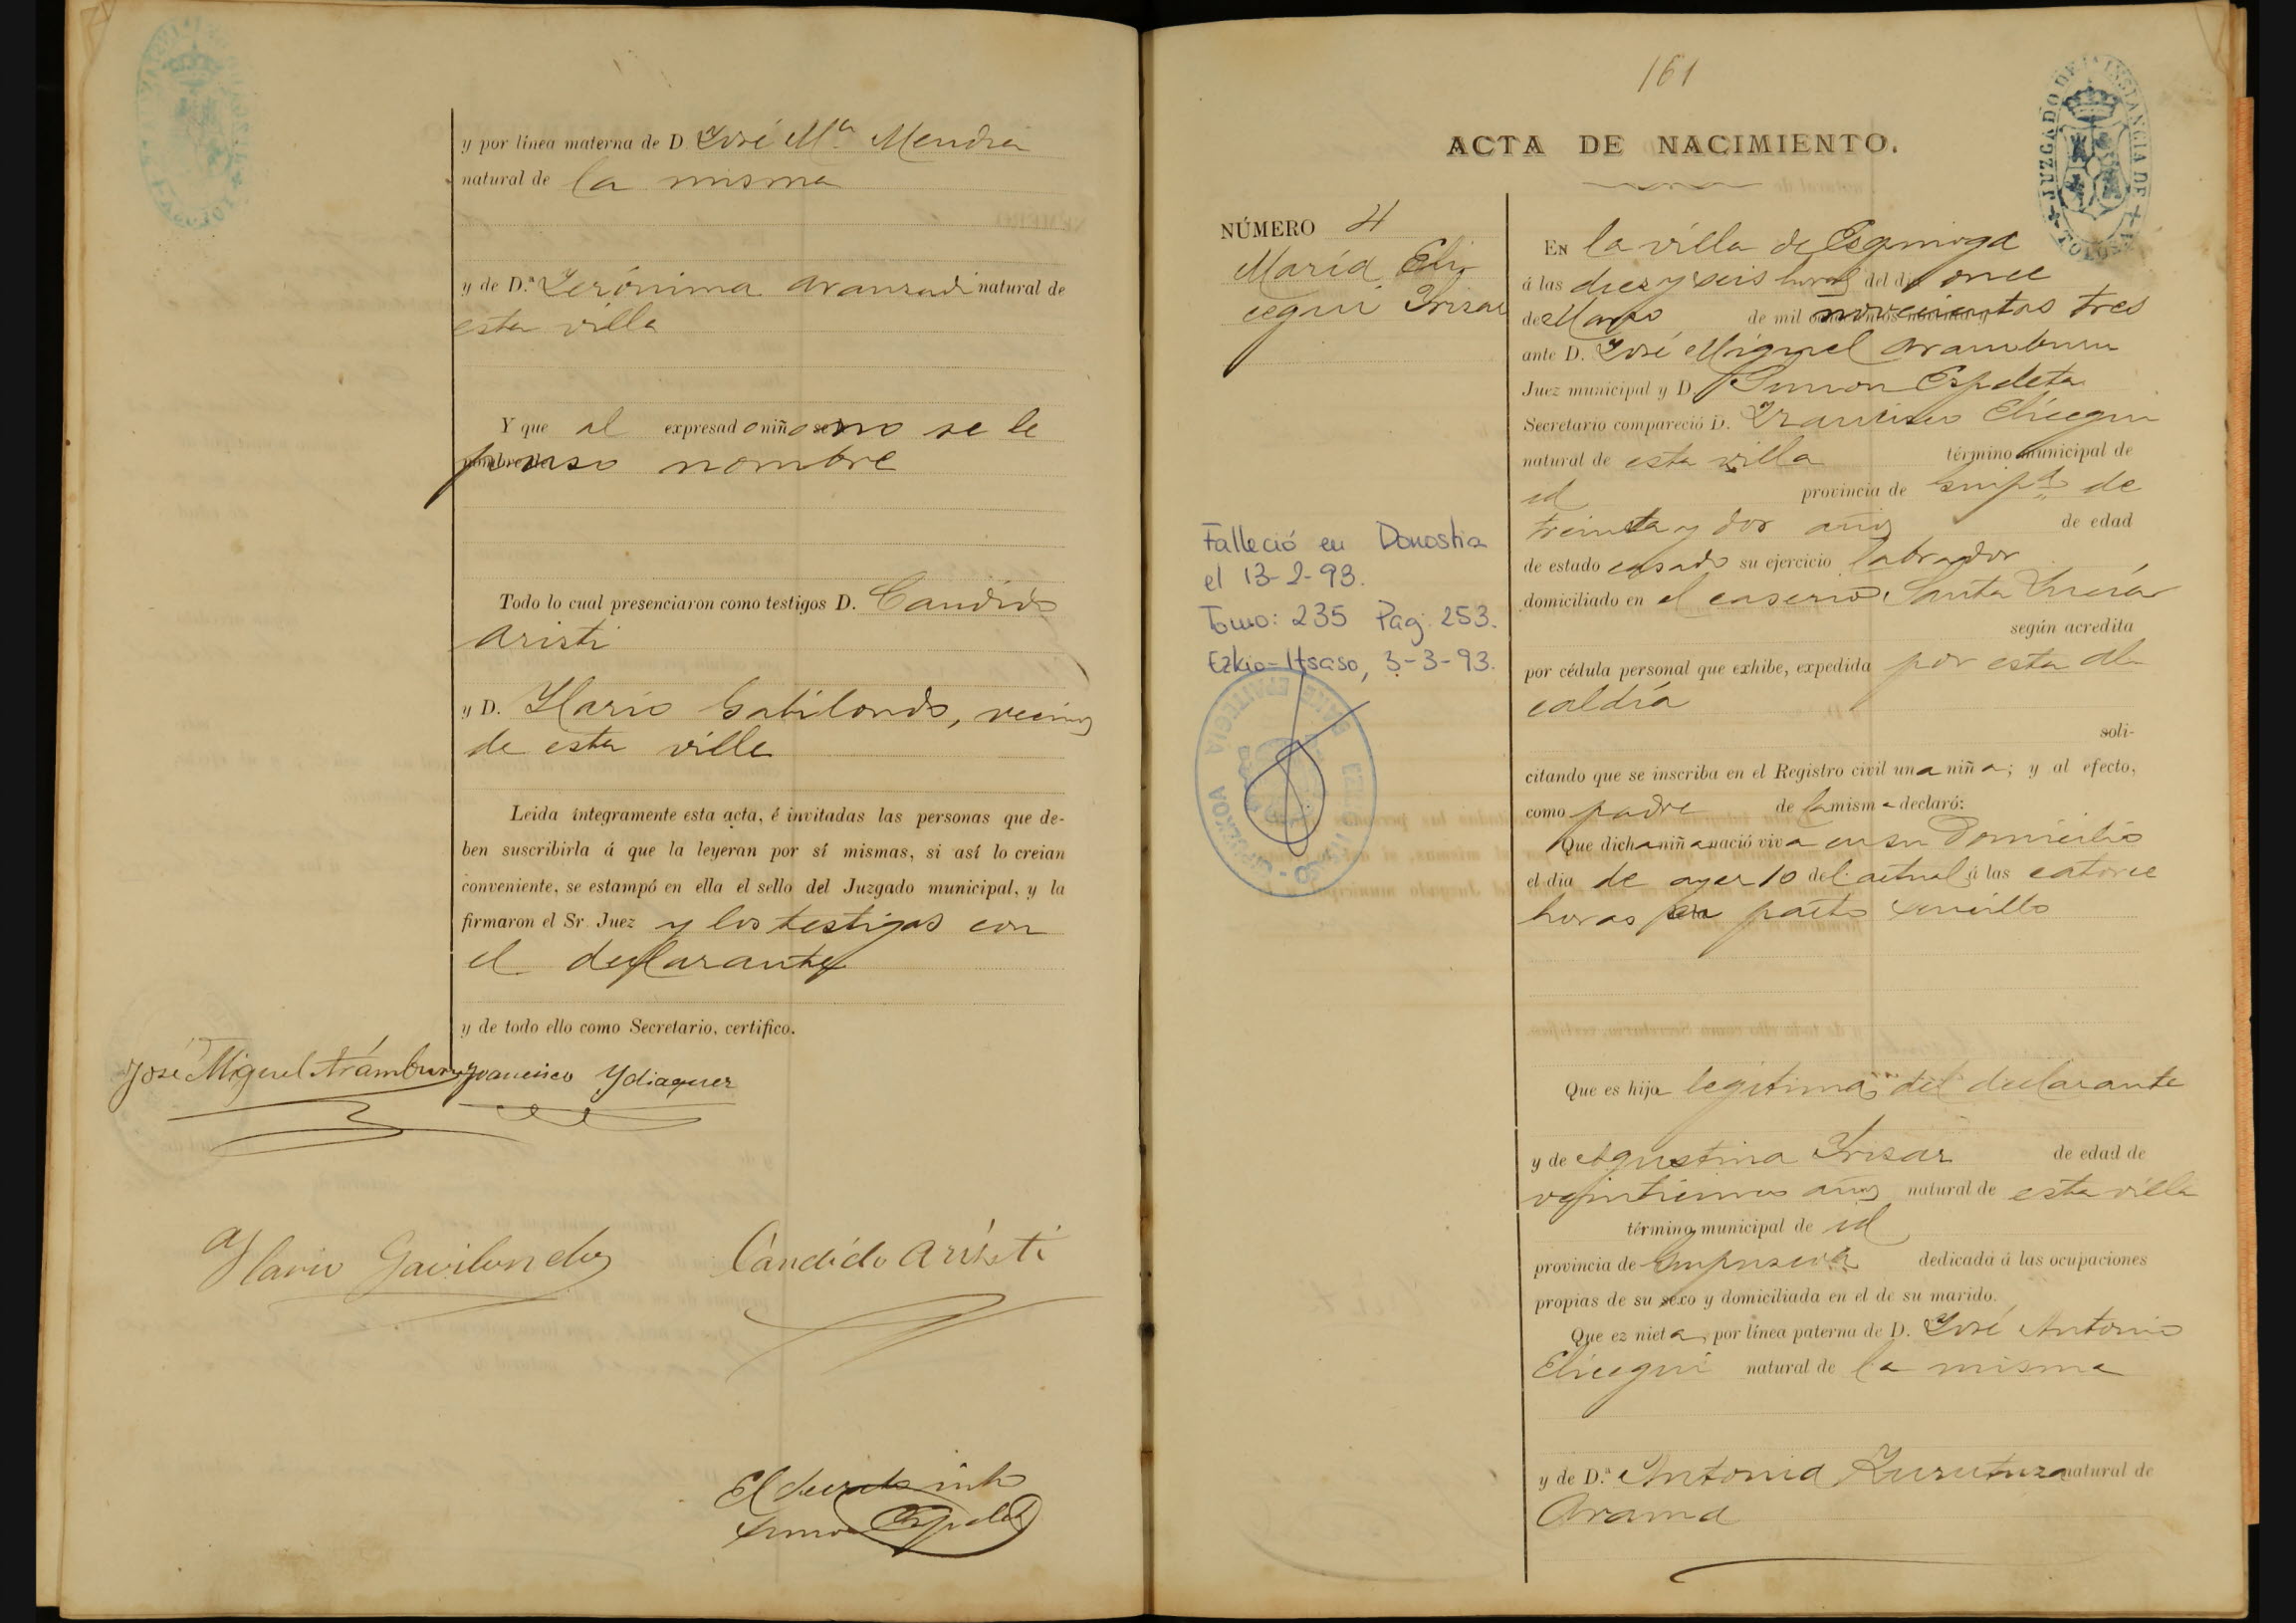 y por línea materna de D. José Mª Mendia
natural de la misma
y de D.ª Gerónima Aranzadi natural de
esta villa
Y que al expresado niño se no se le
puso nombre
Todo lo cual presenciaron como testigos D. Candido
Aristi
y D. Ylario Gabilondo, vecinos
de esta villa
Leida íntegramente esta acta, é invitadas las personas que de-
ben suscribirla á que la leyeran por sí mismas, si así lo creian
conveniente, se estampó en ella el sello del Juzgado municipal, y la
firmaron el Sr. Juez y los testigos con
el declarante
y de todo ello como Secretario, certifico.
José Miguel Arámburu Francisco Ydiaquez
Ylario Gavilondo Cándido Aristi
El secretario
Simon Ezpeleta
161
JUZGADO DE 1ª INSTANCIA DE TOLOSA
ACTA DE NACIMIENTO.
NÚMERO 4
María Eli
cegui Yrisar
Falleció en Donostia
el 13-2-93.
Tomo: 235 Pag. 253.
Ezkio-Itsaso, 3-3-93.
En la villa de Ezquioga
á las diez y seis horas del dia once
de Marzo de mil novecientos tres
ante D. José Miguel Aramburu
Juez municipal y D. Simon Ezpeleta
Secretario compareció D. Francisco Elicegui
natural de esta villa término municipal de
id provincia de Guipª de
treinta y dos años de edad
de estado casado su ejercicio labrador
domiciliado en el caserio Santa Lucía
según acredita
por cédula personal que exhibe, expedida por esta al-
caldía
soli-
citando que se inscriba en el Registro civil una niña; y al efecto,
como padre de la misma declaró:
Que dicha niña nació viva en su domicilio
el dia de ayer 10 del actual á las catorce
horas en parto sencillo
Que es hija legitima del declarante
y de Agustina Yrisar de edad de
veinticinco años natural de esta villa
término municipal de id
provincia de Guipuzcoa dedicada á las ocupaciones
propias de su sexo y domiciliada en el de su marido.
Que ez nieta, por línea paterna de D. José Antonio
Elicegui natural de la misma
y de D.ª Antonia Zurutuza natural de
Arama